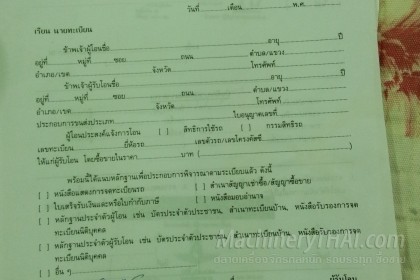 วันที่..........เดือน..........พ.ศ..........
เรียน นายทะเบียน
ข้าพเจ้าผู้โอนชื่อ..........อายุ..........ปี
อยู่ที่..........หมู่ที่..........ซอย..........ถนน..........ตำบล/แขวง..........
อำเภอ/เขต..........จังหวัด..........โทรศัพท์..........
ข้าพเจ้าผู้รับโอนชื่อ..........อายุ..........ปี
อยู่ที่..........หมู่ที่..........ซอย..........ถนน..........ตำบล/แขวง..........
อำเภอ/เขต..........จังหวัด..........โทรศัพท์..........
ประกอบการขนส่งประเภท..........ใบอนุญาตเลขที่..........
ผู้โอนประสงค์แจ้งการโอน [ ] สิทธิการใช้รถ [ ] กรรมสิทธิ์รถ
เลขทะเบียน..........ยี่ห้อรถ..........เลขตัวรถ/เลขโครงคัสซี..........
ให้แก่ผู้รับโอน โดยซื้อขายในราคา..........บาท (..........)
พร้อมนี้ได้แนบหลักฐานเพื่อประกอบการพิจารณาตามระเบียบแล้ว ดังนี้
[ ] หนังสือแสดงการจดทะเบียนรถ [ ] สำเนาสัญญาเช่าซื้อ/สัญญาซื้อขาย
[ ] ใบเสร็จรับเงินและหรือใบกำกับภาษี [ ] หนังสือมอบอำนาจ
[ ] หลักฐานประจำตัวผู้โอน เช่น บัตรประจำตัวประชาชน, สำเนาทะเบียนบ้าน, หนังสือรับรองการจด
ทะเบียนนิติบุคคล
[ ] หลักฐานประจำตัวผู้รับโอน เช่น บัตรประจำตัวประชาชน, สำเนาทะเบียนบ้าน, หนังสือรับรองการ
จดทะเบียนนิติบุคคล
[ ] อื่น ๆ
MachineryTHAI.com